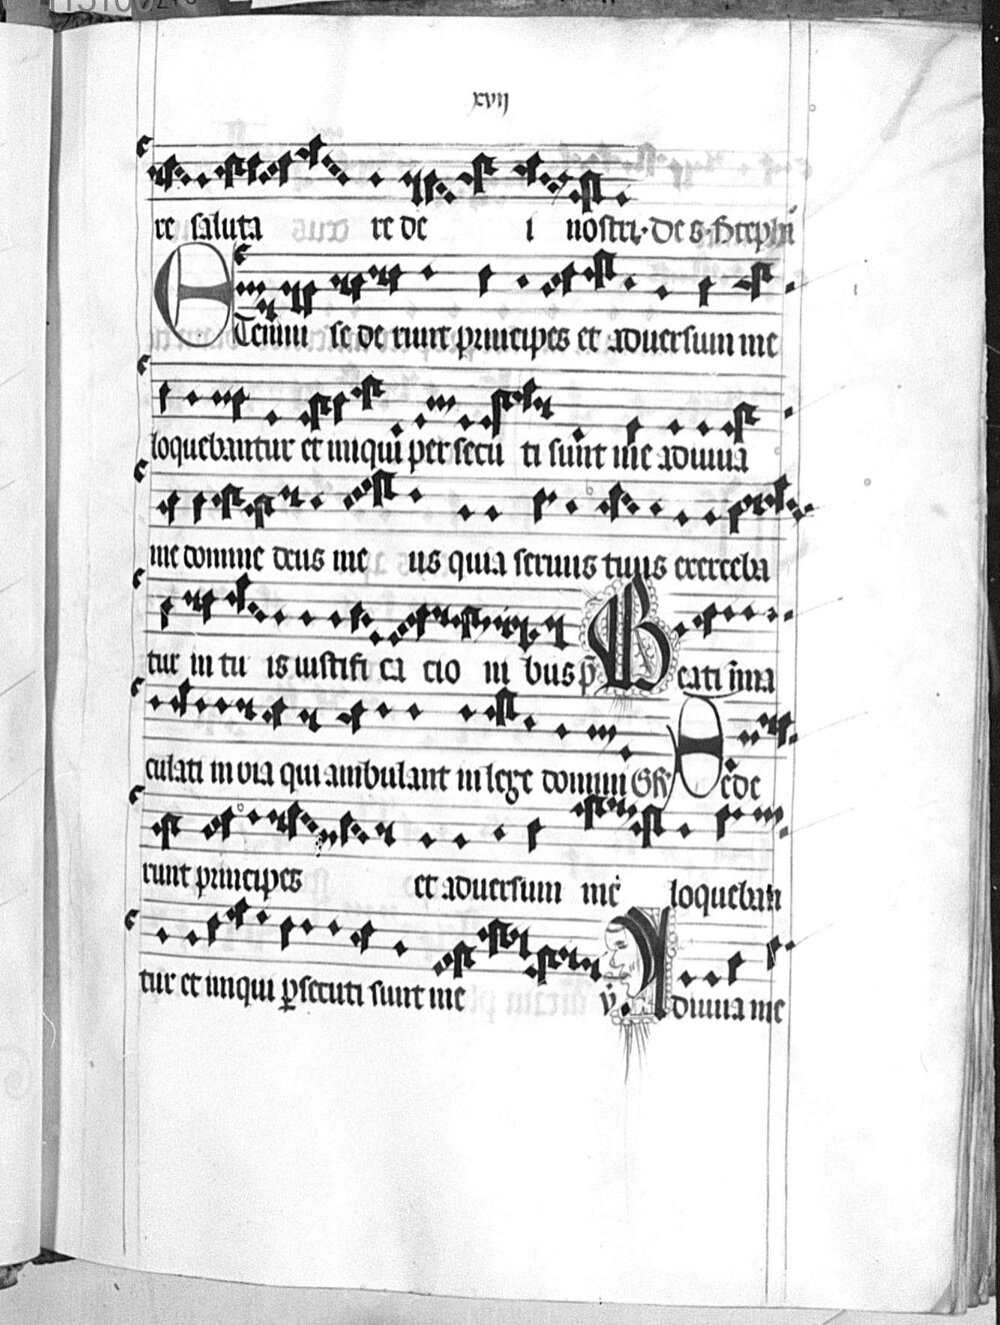 xvij
re saluta re de i nostri. De s. Steph̄i
ETenim se de runt principes et aduersum me
loquebantur et iniqui per secu ti sunt me adiuua
me domine deus me us quia seruus tuus exerceba
tur in tu is iustifi ca cio ni bus p̄ Beati īma
culati in via qui ambulant in lege domini Gr̄ Sede
runt principes et aduersum me loqueban
tur et iniqui ꝑsecuti sunt me v̄ Adiuua me